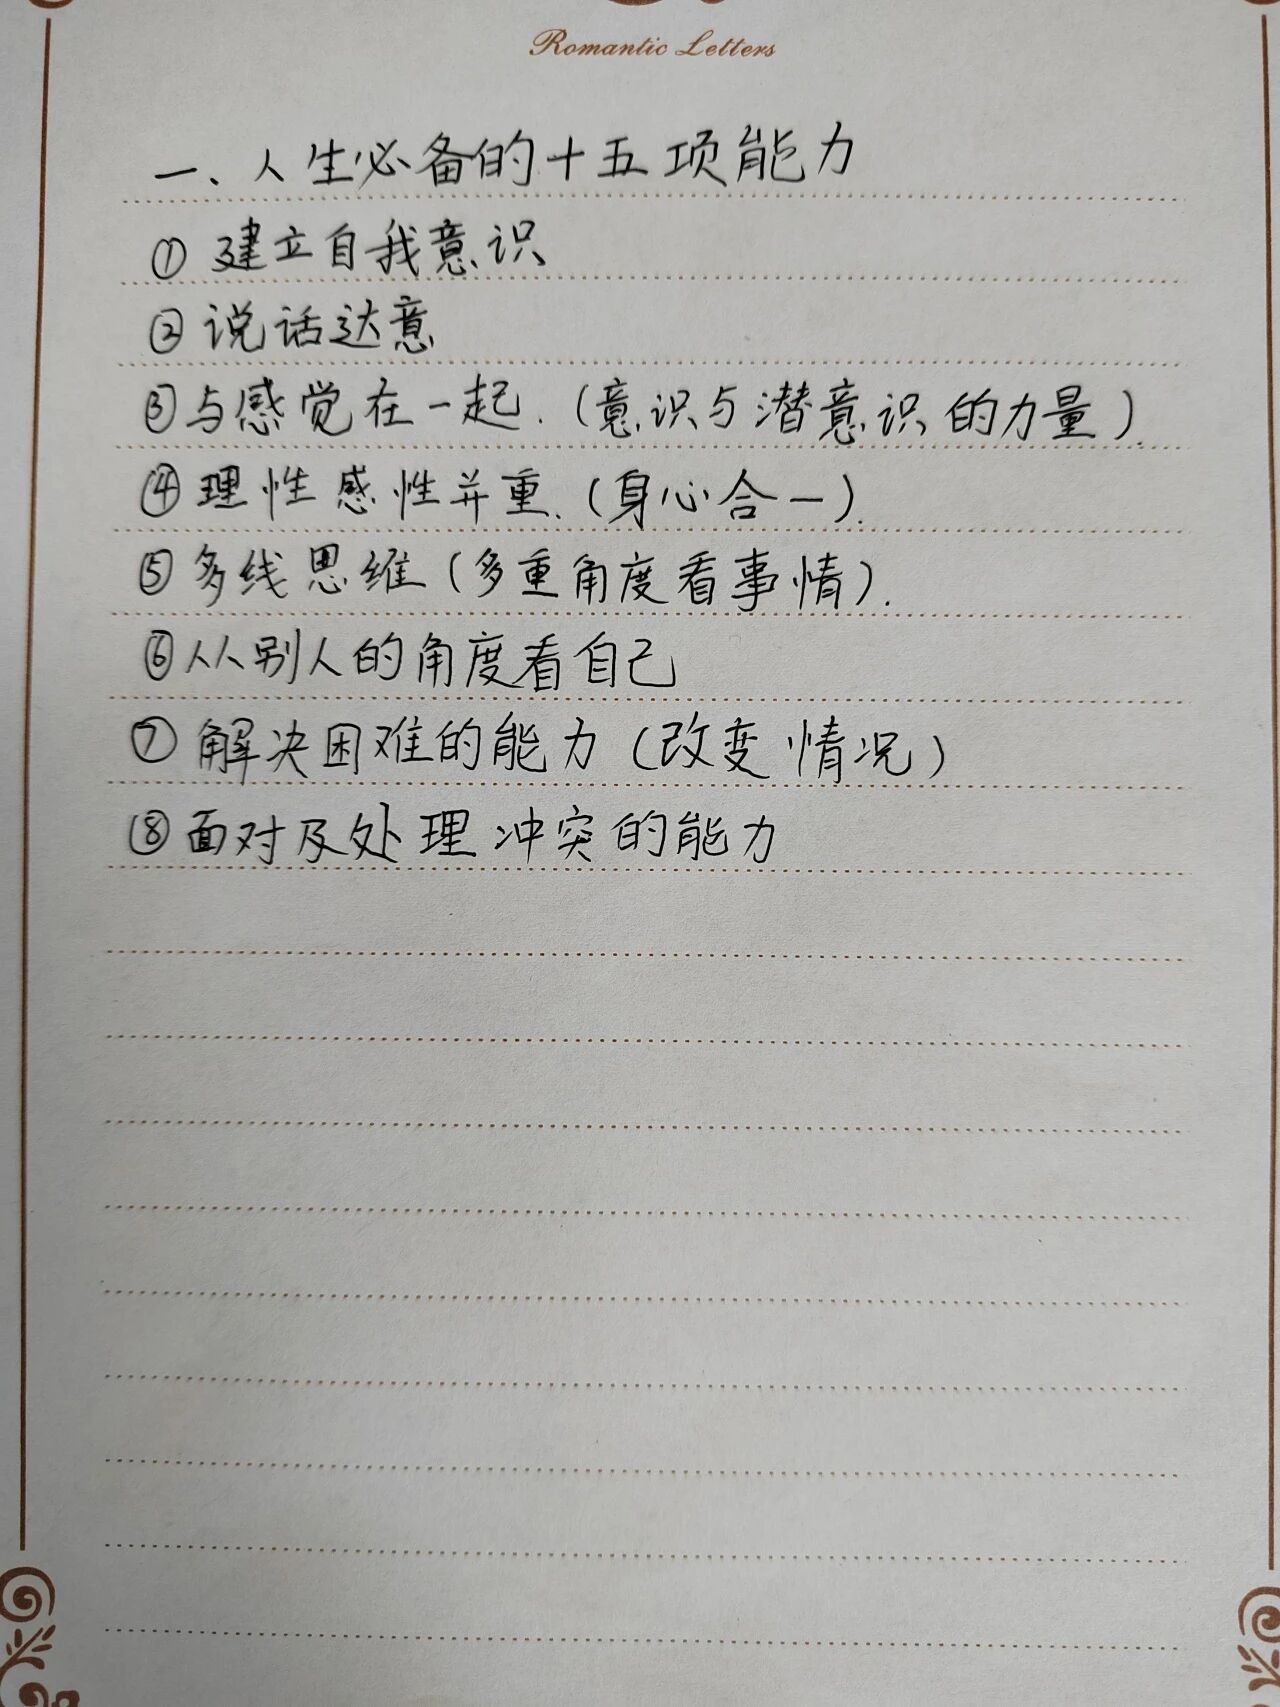 Romantic Letters
一、人生必备的十五项能力
① 建立自我意识
② 说话达意
③与感觉在一起.(意识与潜意识的力量).
④理性感性并重.(身心合一).
⑤多线思维(多重角度看事情).
⑥从别人的角度看自己
⑦ 解决困难的能力(改变情况)
⑧面对及处理冲突的能力